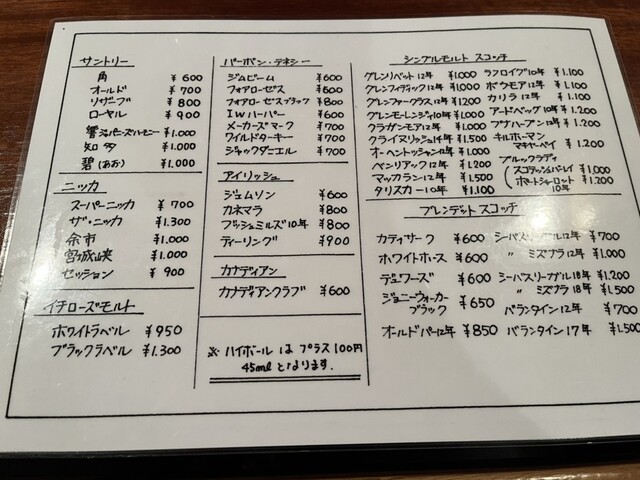 サントリー
角 ¥600
オールド ¥700
リザーブ ¥800
ローヤル ¥900
響ジャパニーズハーモニー ¥1.000
知多 ¥1.000
碧(あお) ¥1.000
ニッカ
スーパーニッカ ¥700
ザ・ニッカ ¥1.300
余市 ¥1.000
宮城峡 ¥1.000
セッション ¥900
イチローズモルト
ホワイトラベル ¥950
ブラックラベル ¥1.300
バーボン・テネシー
ジムビーム ¥600
フォアローゼス ¥600
フォアローゼスブラック ¥800
IWハーパー ¥600
メーカーズマーク ¥700
ワイルドターキー ¥700
ジャックダニエル ¥700
アイリッシュ
ジェムソン ¥600
カネマラ ¥800
ブッシュミルズ10年 ¥800
ティーリング ¥900
カナディアン
カナディアンクラブ ¥600
※ ハイボールは プラス100円
45mlとなります.
シングルモルト スコッチ
グレンリベット12年 ¥1000
グレンフィディック12年 ¥1000
グレンファークラス12年 ¥1200
グレンモーレンジィ10年 ¥1000
クラガンモア12年 ¥1.000
クライヌリッシュ14年 ¥1.500
オーヘントッシャン12年 ¥1.000
ベンリアック12年 ¥1.200
マッカラン12年 ¥1.500
タリスカー10年 ¥1.100
ラフロイグ10年 ¥1.100
ボウモア12年 ¥1.100
カリラ12年 ¥1.200
アードベッグ10年 ¥1.200
ブナハーブン12年 ¥1.200
キルホーマン
マキヤーベイ ¥1.200
ブルックラディ
スコティッシュバーレイ ¥1.000
ポートシャーロット10年 ¥1.200
ブレンデット スコッチ
カティサーク ¥600
ホワイトホース ¥600
デュワーズ ¥600
ジョニーウォーカー
ブラック ¥650
オールドパー12年 ¥850
シーバスリーガル12年 ¥700
〃 ミズナラ12年 ¥1.000
シーバスリーガル18年 ¥1.200
〃 ミズナラ18年 ¥1.500
バランタイン12年 ¥700
バランタイン17年 ¥1.500